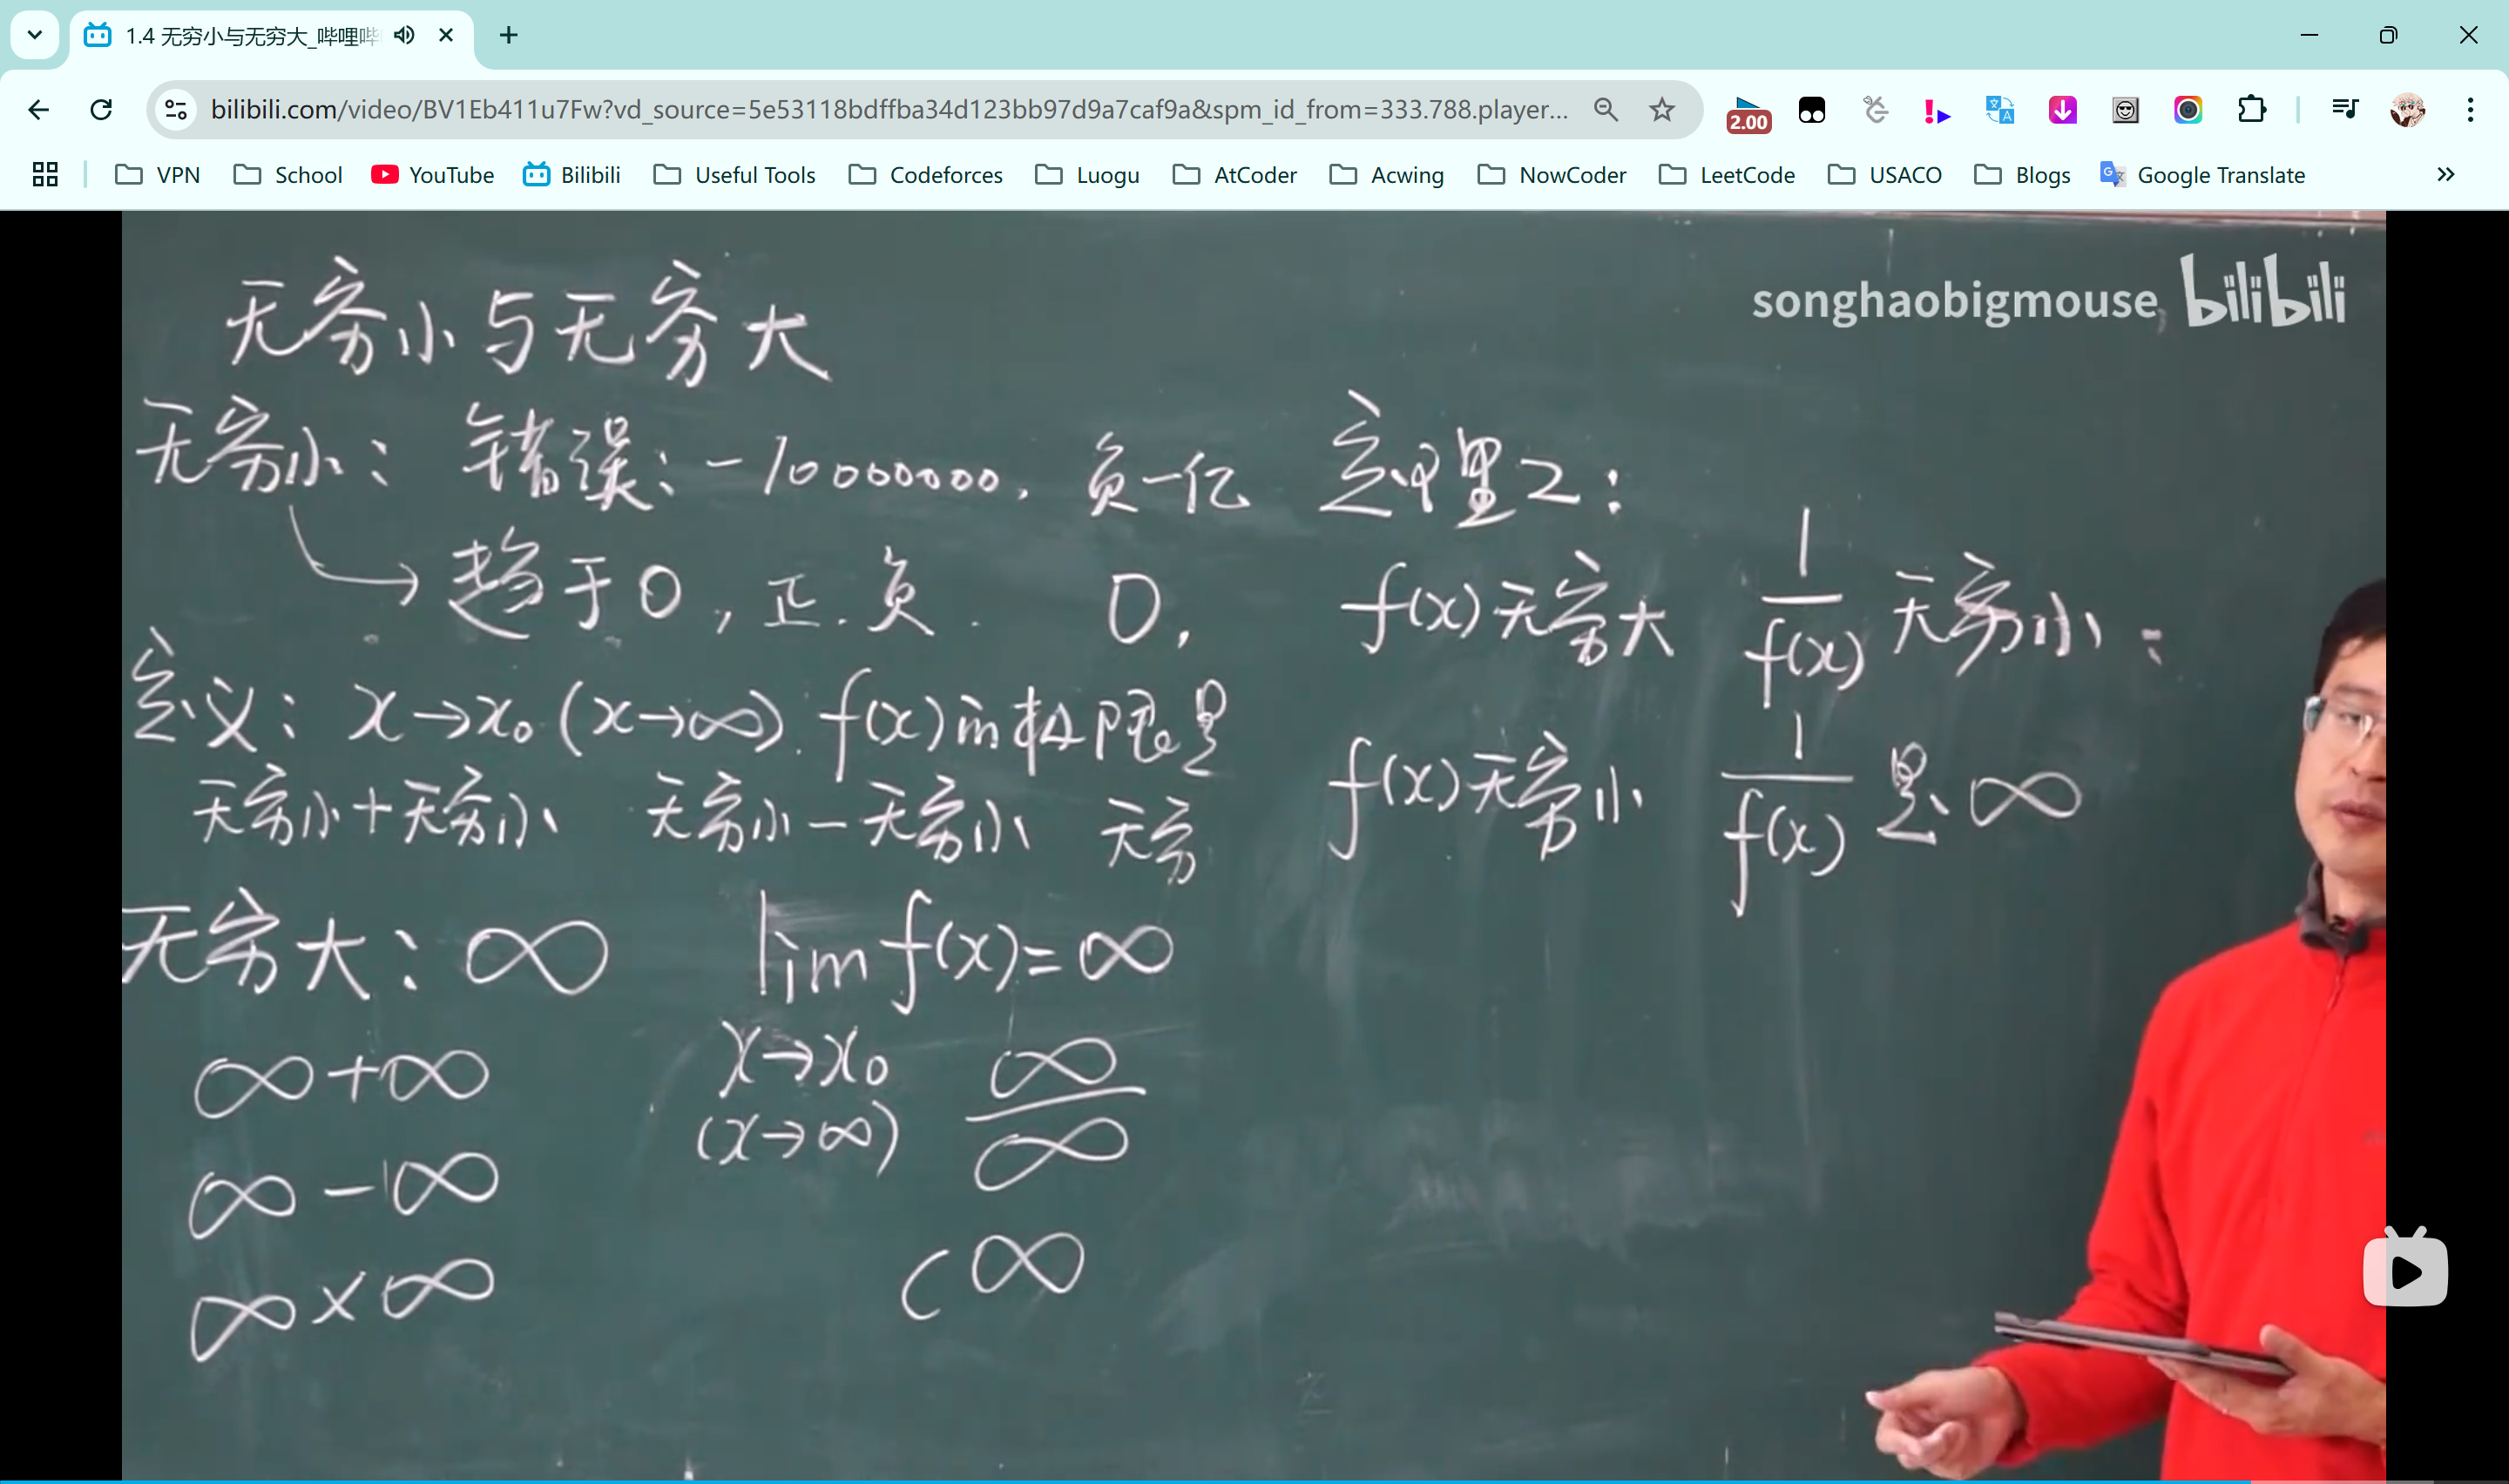 1.4 无穷小与无穷大_哔哩哔
bilibili.com/video/BV1Eb411u7Fw?vd_source=5e53118bdffba34d123bb97d9a7caf9a&spm_id_from=333.788.player...
2.00
VPN School YouTube Bilibili Useful Tools Codeforces Luogu AtCoder Acwing NowCoder LeetCode USACO Blogs Google Translate
songhaobigmouse bilibili
无穷小与无穷大
无穷小: 错误: -10000000. 负一亿
趋于0, 正. 负. 0,
定义: x→x₀ (x→∞). f(x)的极限是
无穷小+无穷小 无穷小-无穷小 无穷
无穷大: ∞ lim f(x)=∞
x→x₀
(x→∞)
∞+∞
∞-∞
∞×∞
∞/∞
c∞
定理2:
f(x)无穷大 1/f(x) 无穷小:
f(x)无穷小 1/f(x) 是∞